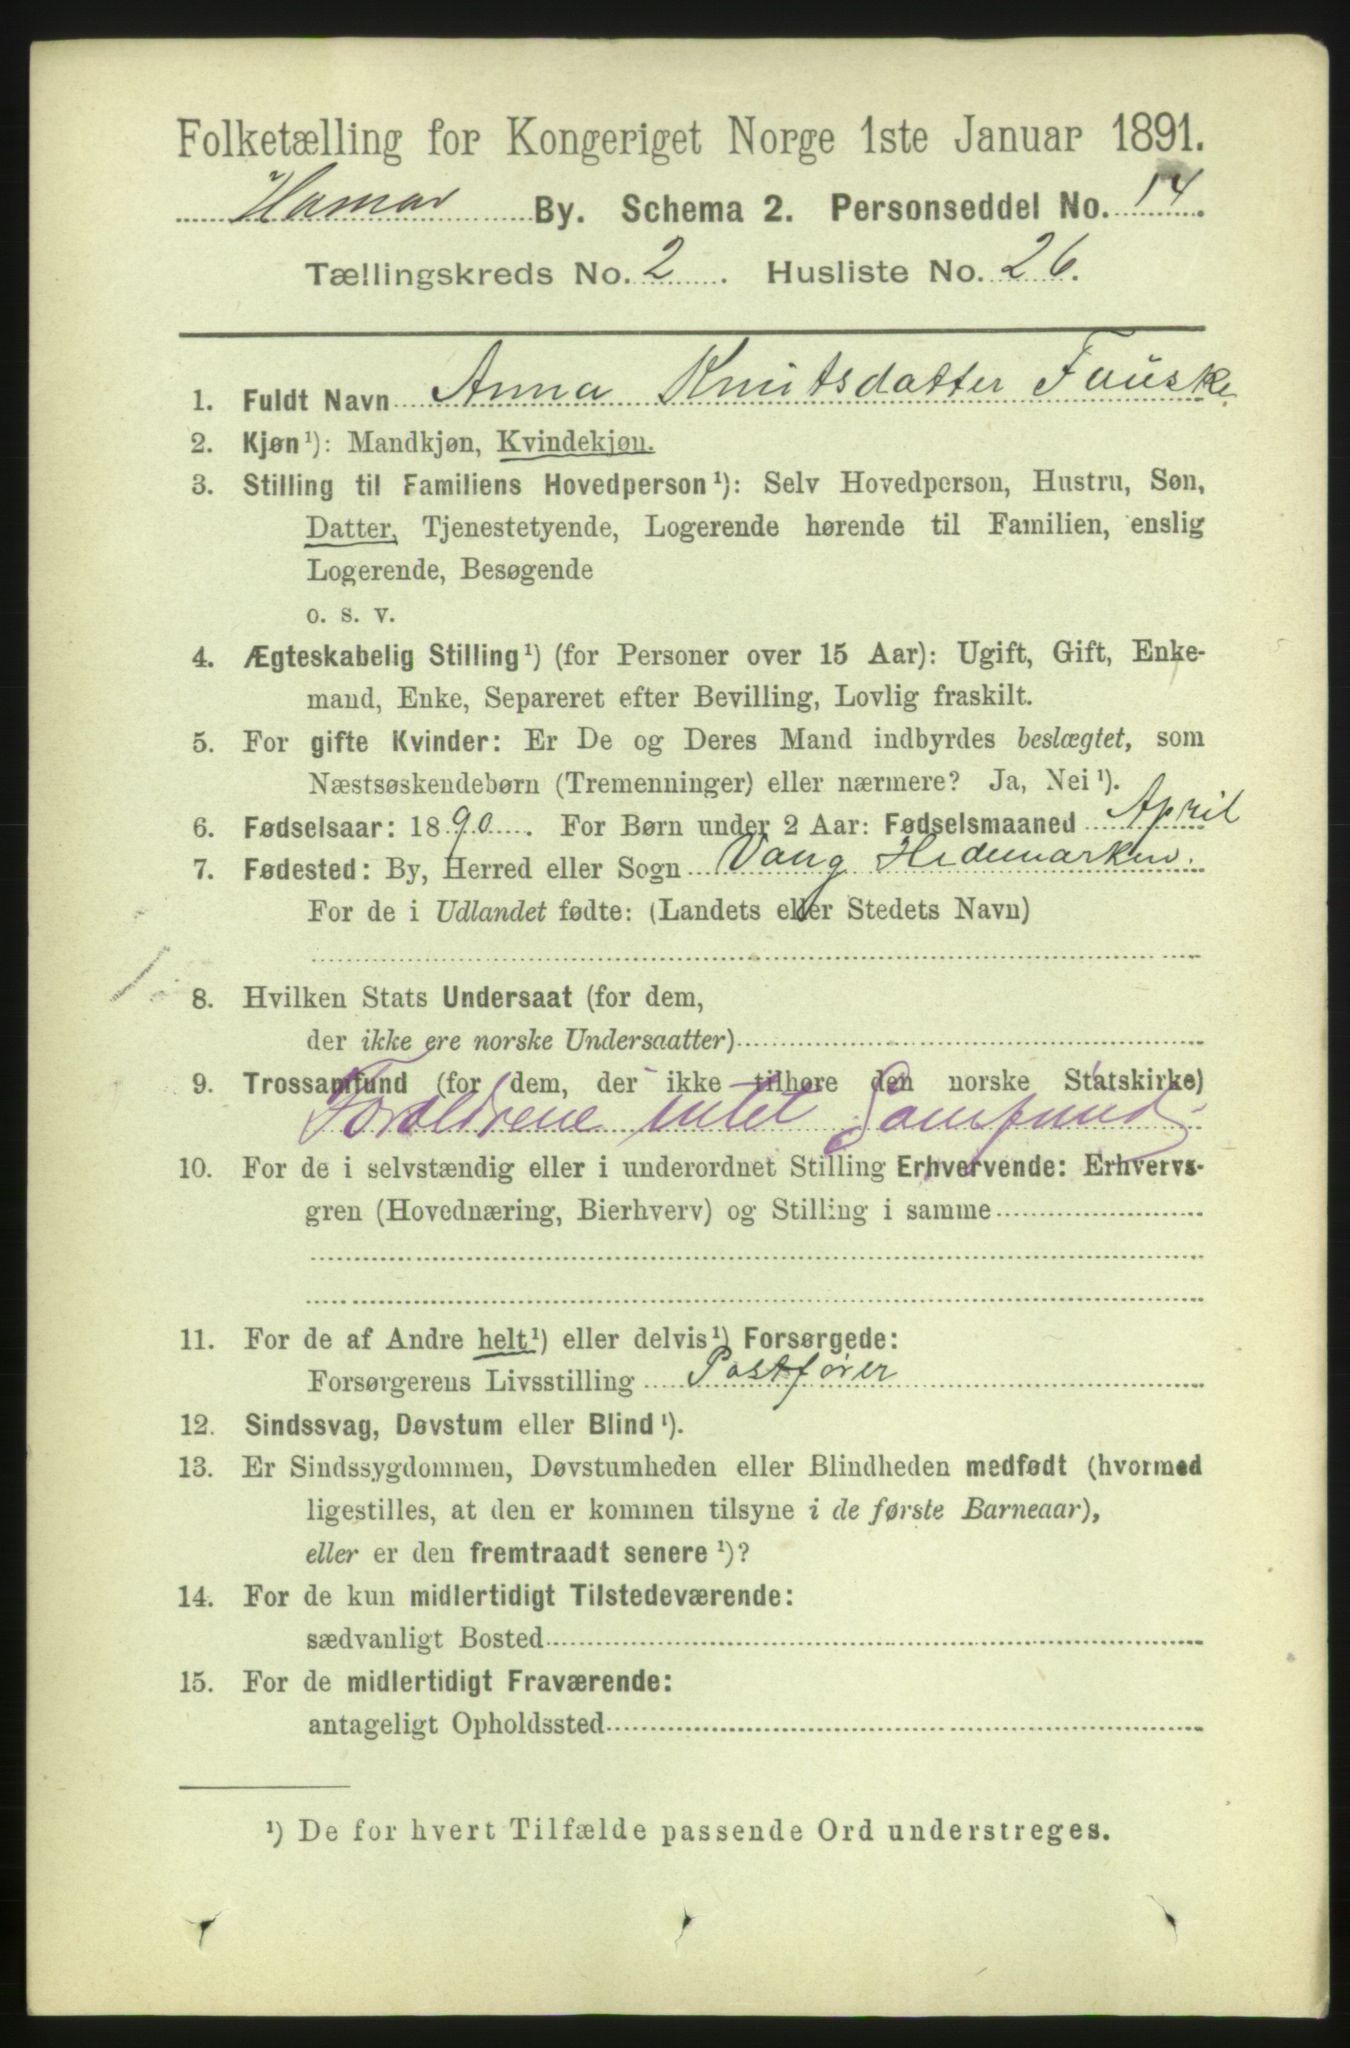 Folketælling for Kongeriget Norge 1ste Januar 1891.
Hamar By. Schema 2. Personseddel No. 14
Tællingskreds No. 2. Husliste No. 26.
1. Fuldt Navn Anna Knutsdatter Fauske
2. Kjøn¹): Mandkjøn, Kvindekjøn.
3. Stilling til Familiens Hovedperson¹): Selv Hovedperson, Hustru, Søn,
Datter, Tjenestetyende, Logerende hørende til Familien, enslig
Logerende, Besøgende
o. s. v.
4. Ægteskabelig Stilling¹) (for Personer over 15 Aar): Ugift, Gift, Enke-
mand, Enke, Separeret efter Bevilling, Lovlig fraskilt.
5. For gifte Kvinder: Er De og Deres Mand indbyrdes beslægtet, som
Næstsøskendebørn (Tremenninger) eller nærmere? Ja, Nei¹).
6. Fødselsaar: 1890. For Børn under 2 Aar: Fødselsmaaned April
7. Fødested: By, Herred eller Sogn Vang Hedemarken.
For de i Udlandet fødte: (Landets eller Stedets Navn)
8. Hvilken Stats Undersaat (for dem,
der ikke ere norske Undersaatter)
9. Trossamfund (for dem, der ikke tilhøre den norske Statskirke)
Forældrene intet Samfund
10. For de i selvstændig eller i underordnet Stilling Erhvervende: Erhvervs-
gren (Hovednæring, Bierhverv) og Stilling i samme
11. For de af Andre helt¹) eller delvis¹) Forsørgede:
Forsørgerens Livsstilling Postfører
12. Sindssvag, Døvstum eller Blind¹).
13. Er Sindssygdommen, Døvstumheden eller Blindheden medfødt (hvormed
ligestilles, at den er kommen tilsyne i de første Barneaar),
eller er den fremtraadt senere¹)?
14. For de kun midlertidigt Tilstedeværende:
sædvanligt Bosted
15. For de midlertidigt Fraværende:
antageligt Opholdssted
¹) De for hvert Tilfælde passende Ord understreges.